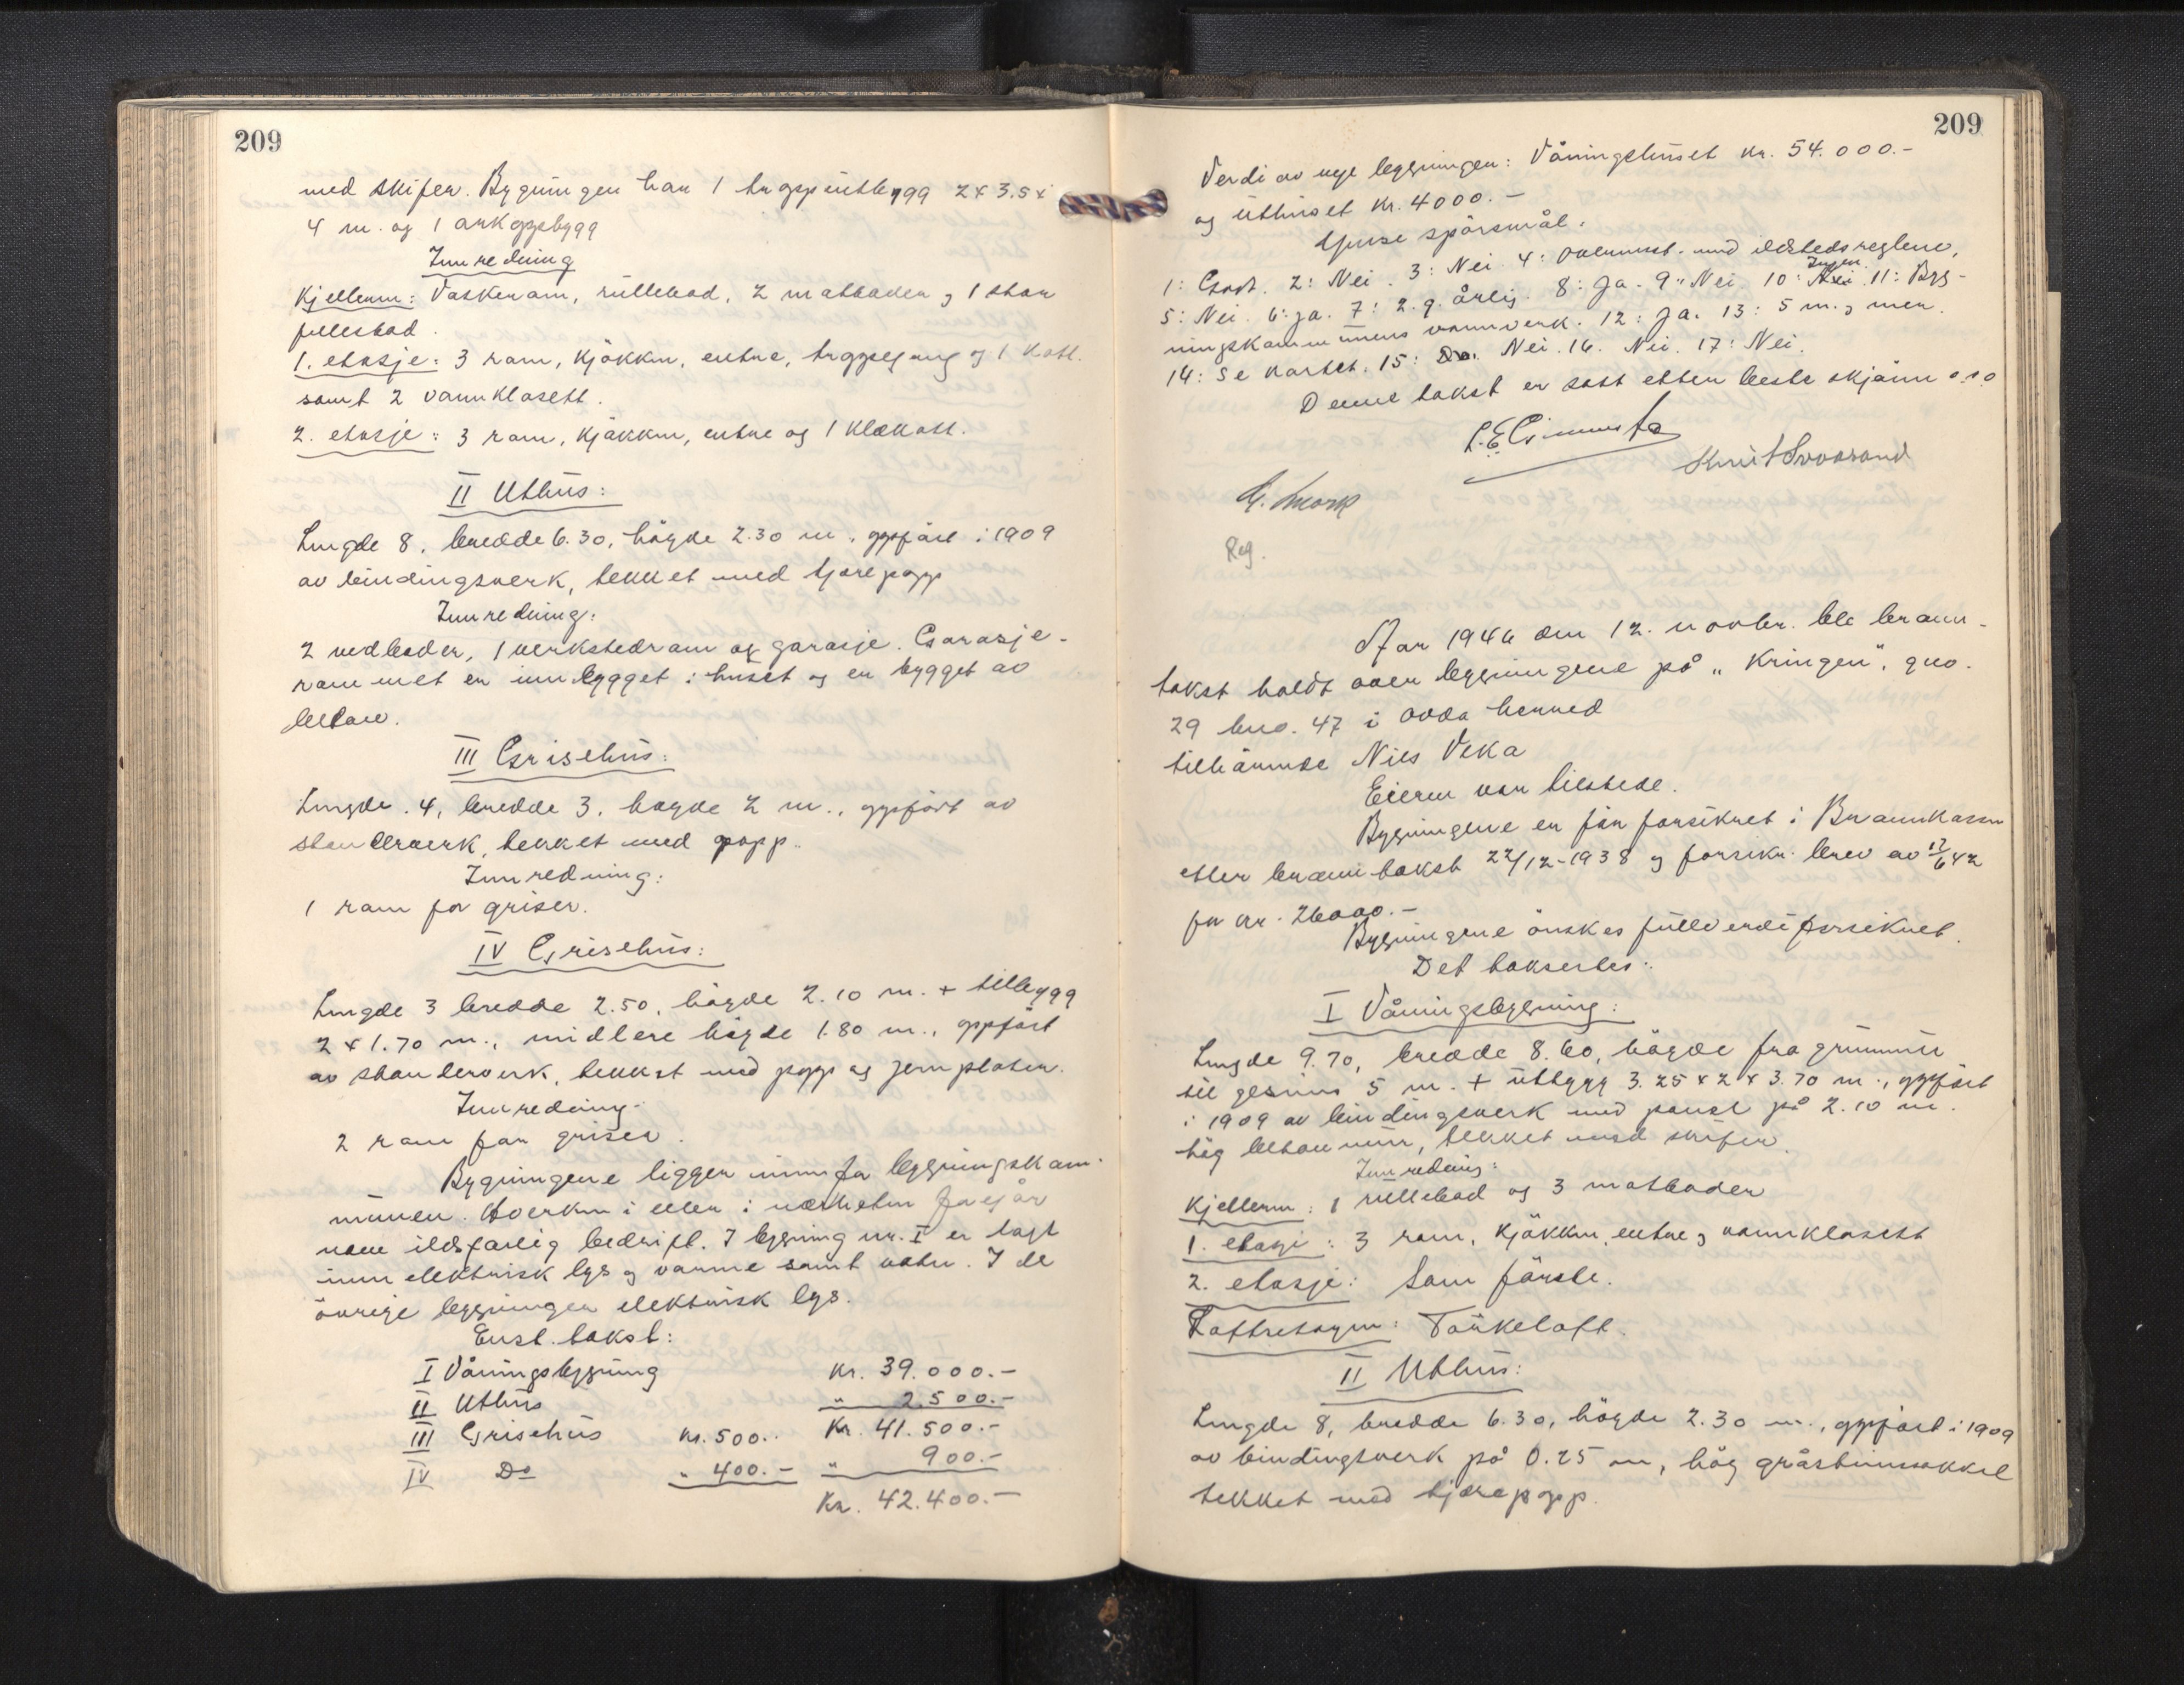 209
med skifer. Bygningen har 1 trappeutbygg 2 x 3.5 x
4 m. og 1 arkoppbygg
Innredning
Kjelleren: Vaskerom, rullebod, 2 matboder og 1 stor
fellesbod.
1. etasje: 3 rom, kjökken, entre, trappegang og 1 kott.
samt 2 vannklosett.
2. etasje: 3 rom, kjökken, entre og 1 klækott.
II Uthus:
Lengde 8, bredde 6.30, högde 2.30 m., oppfört i 1909
av bindingsverk, tekket med tjærepapp
Innredning:
2 vedboder, 1 verkstedrom og garasje. Garasje-
rommet er innbygget i huset og er bygget av
betong.
III Grisehus:
Lengde. 4, bredde 3, högde 2 m., oppfört av
stenderverk, tekket med papp.
Innredning:
1 rom for griser.
IV Grisehus:
Lengde 3 bredde 2.50, högde 2.10 m. + tilbygg
2 x 1.70 m., midlere högde 1.80 m., oppfört
av stenderverk, tekket med papp og jernplater.
Innredning.
2 rom for griser.
Bygningene ligger innenfor bygningskom-
munen. Hverken i eller i nærheten foregår
noen ildsfarlig bedrift. I bygning nr. I er lagt
inn elektrisk lys og varme samt vatn. I de
övrige bygninger elektrisk lys.
Enst. takst:
I Våningsbygning kr. 39.000.-
II Uthus " 2.500.-
III Grisehus kr. 500.- Kr. 41.500.-
IV Do " 400.- " 900.-
Kr. 42.400.-
209
Verdi av nye bygninger: Våningshuset kr. 54.000.-
og uthuset kr. 4000.-
Ymse spörsmål.
1: Godt. 2: Nei. 3: Nei 4: Overensst. med ildstedsreglene,
5: Nei. 6: ja. 7: 2. g. årlig. 8: Ja. 9" Nei. 10: Nei Ingen. 11: Byg-
ningskommunens vannverk. 12: Ja. 13: 5 m. og mer.
14: Se kartet. 15: Do. Nei. 16. Nei. 17: Nei.
Denne takst er satt etter beste skjönn o.s.o
Knut Svoosand
G. Mork
Reg.
År 1946 den 12. novbr. ble brann-
takst holdt over bygningene på "Kringen", gno.
29 bno. 47 i Odda herred
tilhörende Nils Veka
Eieren var tilstede.
Bygningene er för forsikret i Brannkassen
etter branntakst 22/12-1938 og forsikr. brev av 17/6 42
for kr. 26000.-
Bygningene önskes fullverdiforsikret.
Det takseertes:
I Våningsbygning:
Lengde 9.70, bredde 8.60, högde fra grunnmur
til gesims 5 m. + utbygg 3.25 x 2 x 3.70 m., oppfört
i 1909 av bindingsverk med panel på 2.10 m.
høg betonmur, tekket med skifer.
Innredning:
Kjelleren: 1 rullebod og 3 matboder
1. etasje: 3 rom, kjökken, entre og vannklosett
2. etasje: Som förste.
Loftsetasjen: Törkeloft.
II Uthus:
Lengde 8, bredde 6.30, högde 2.30 m., oppfört i 1909
av bindingsverk på 0.25 m, høg gråsteinssokkel
tekket med tjærepapp.